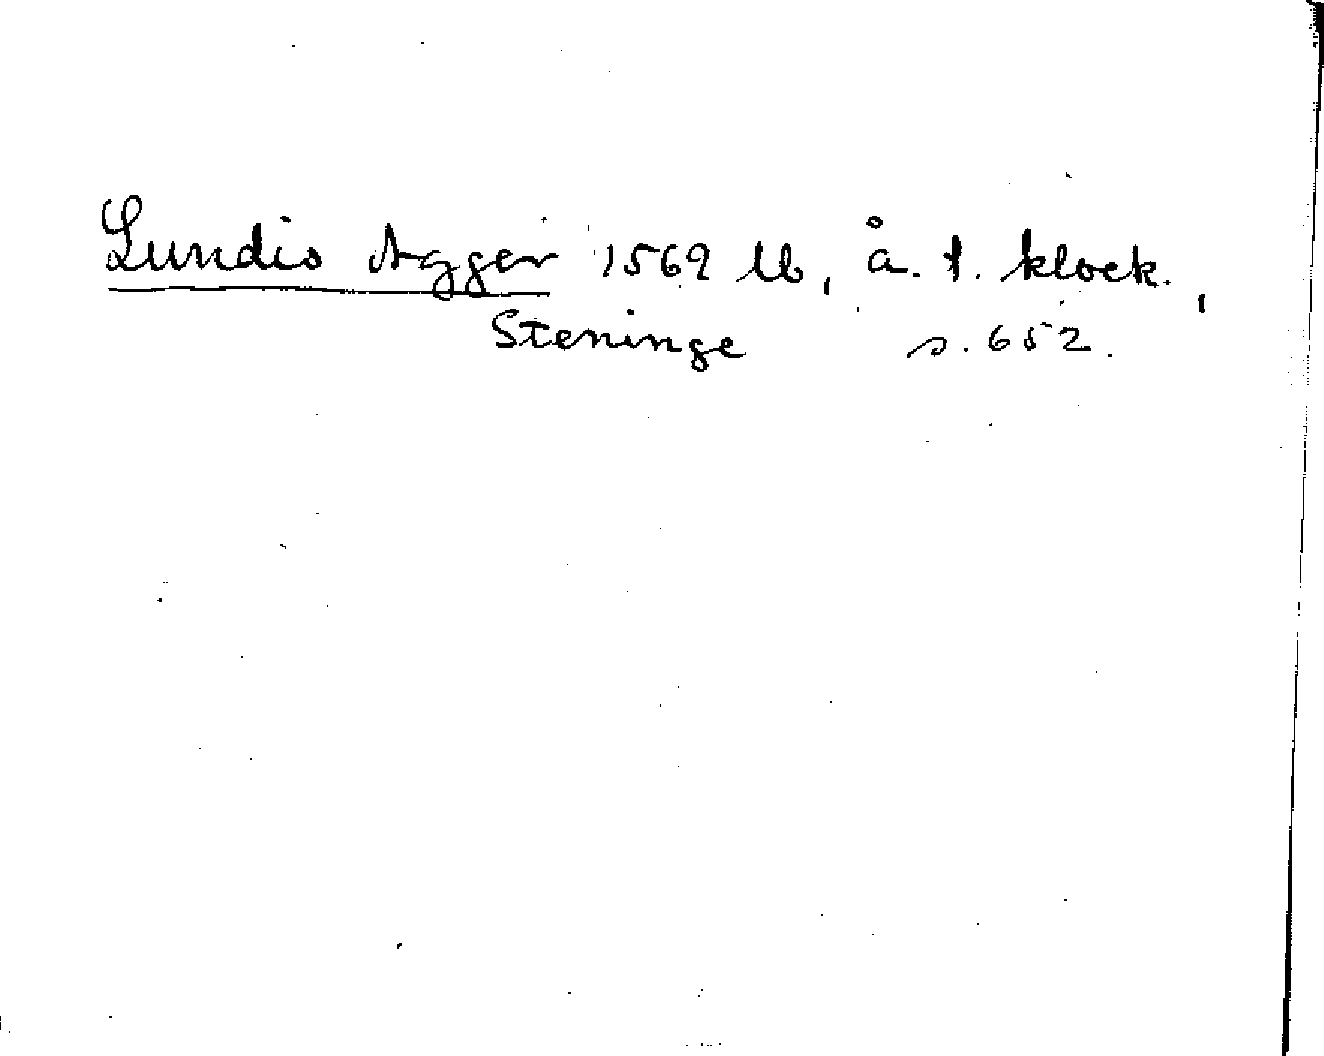 Lundis Agger 1569 lb, å. t. klock.,
Steninge s. 652.